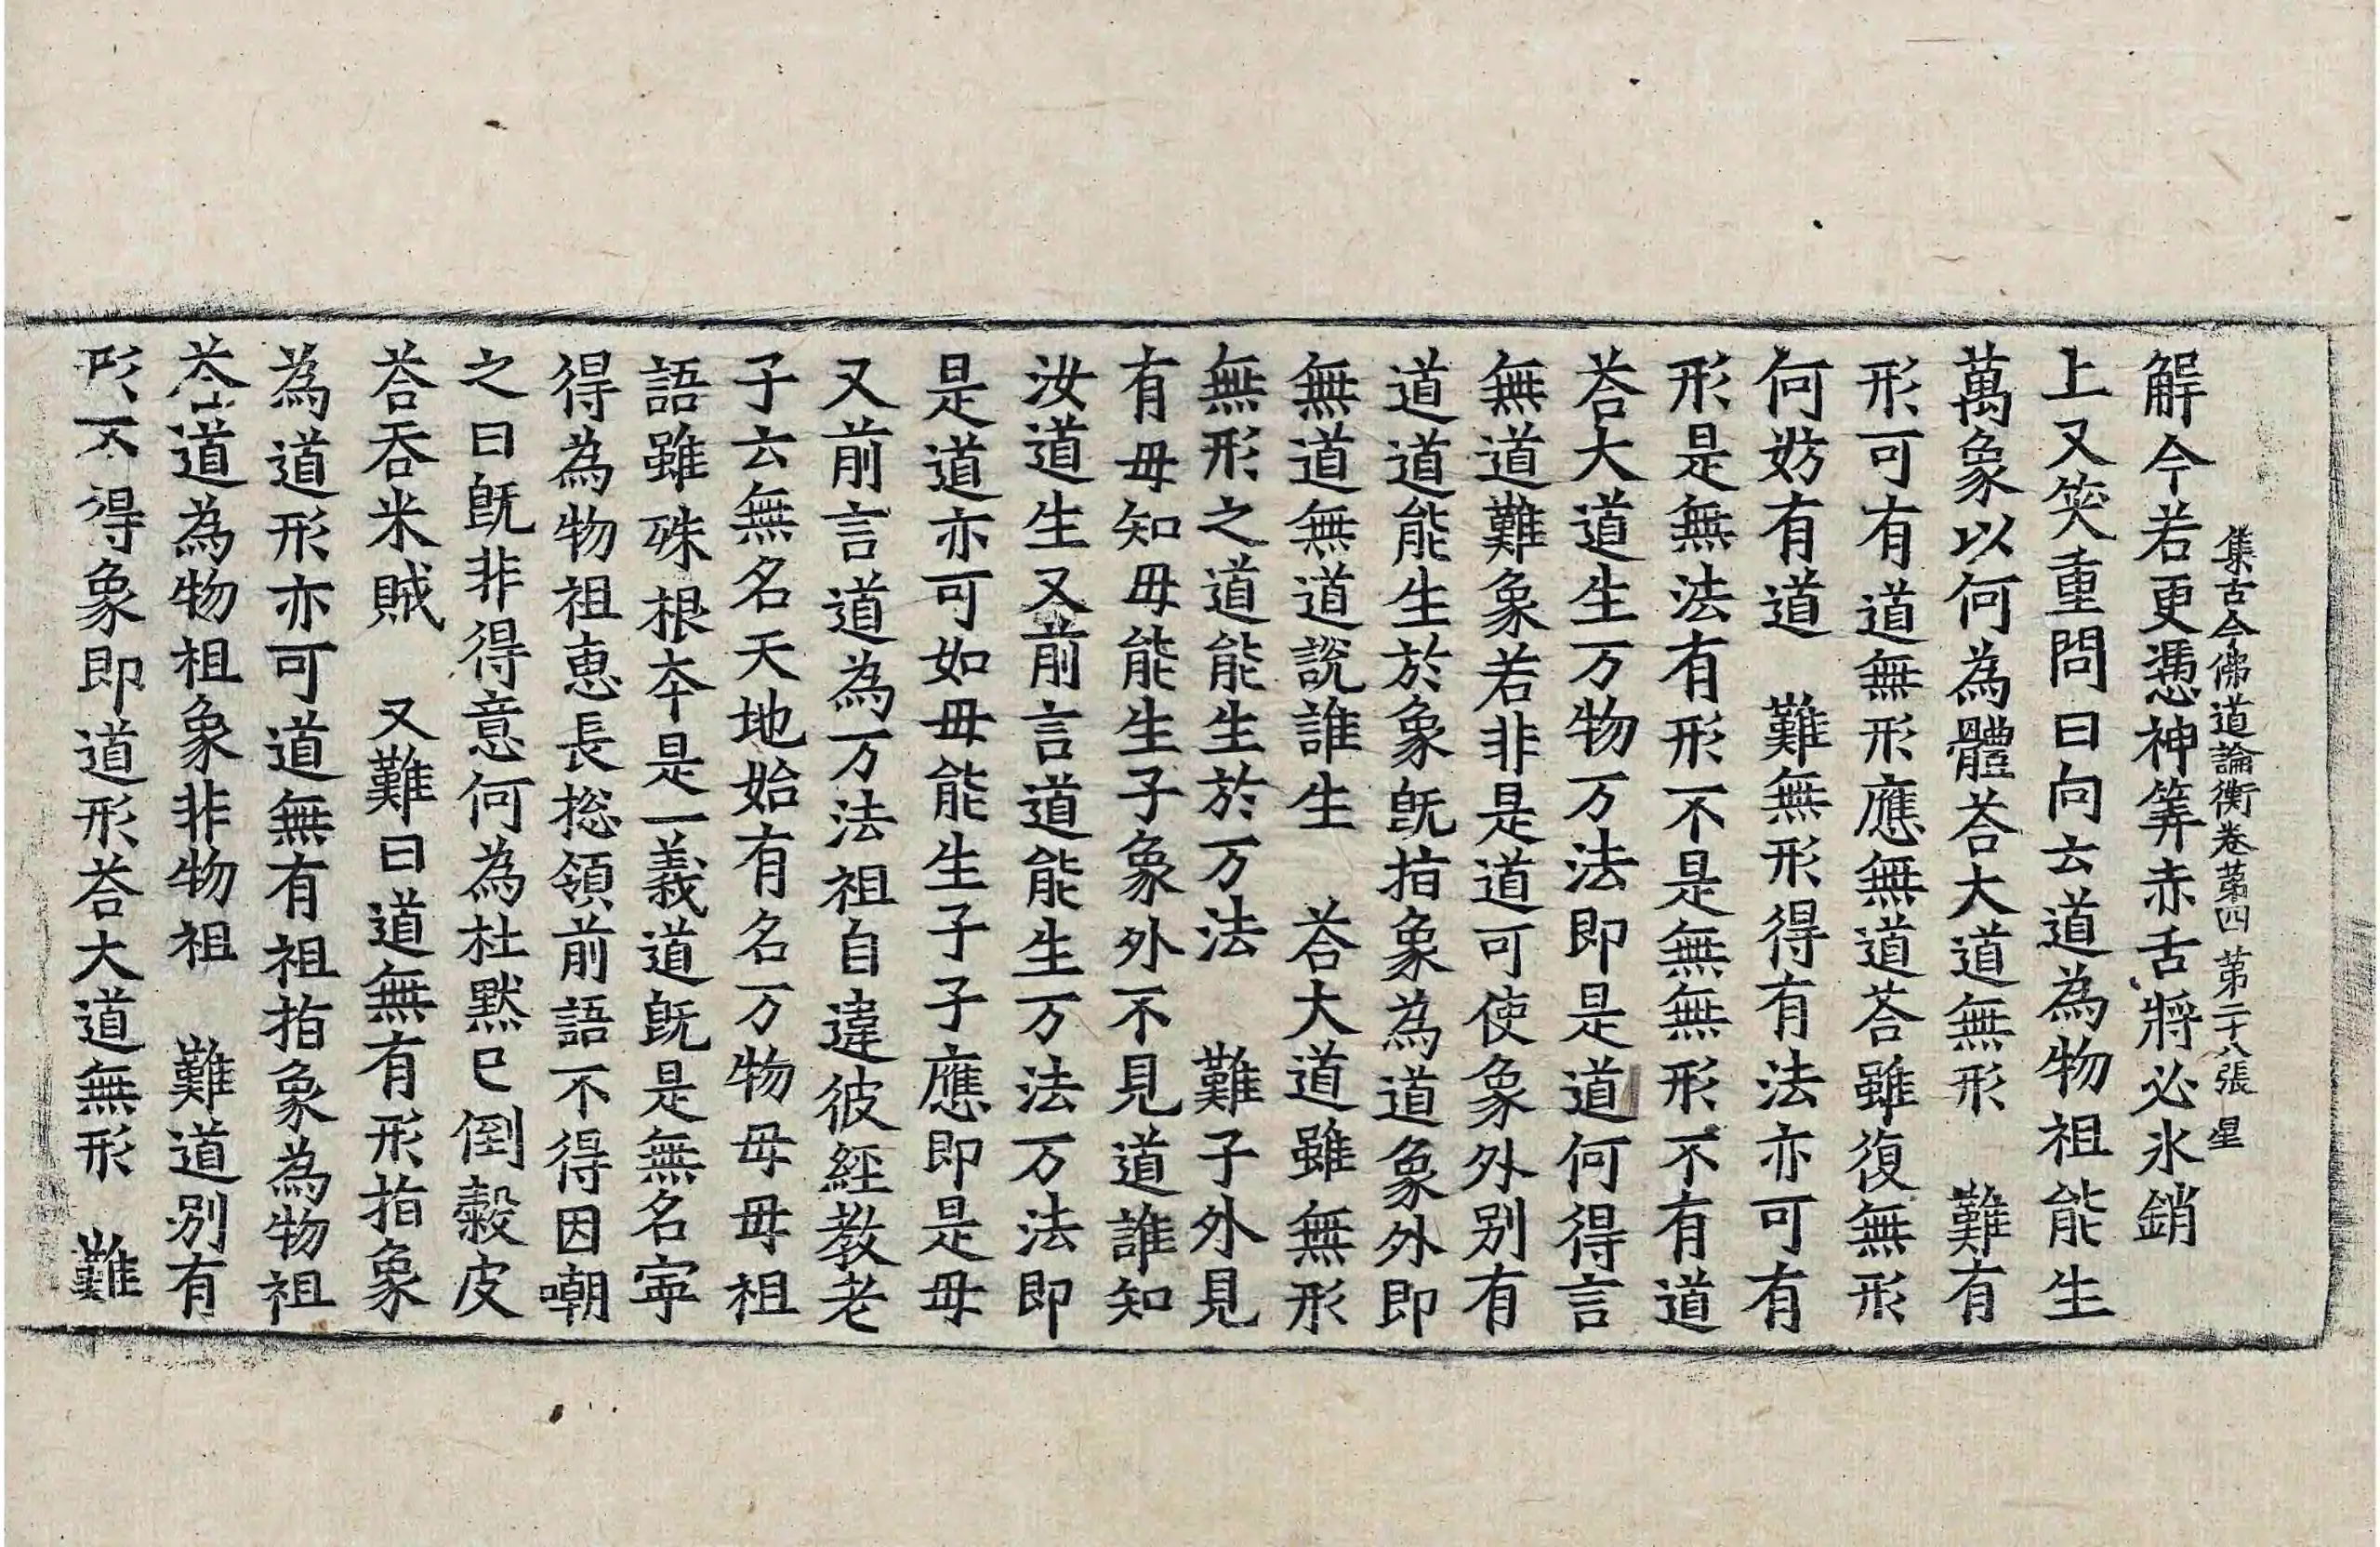 集古今佛道論衡卷苐四 苐二十八張 星
解今若更憑神筭赤舌將必氷銷
上又笑重問曰向云道為物祖能生
萬象以何為體荅大道無形 難有
形可有道無形應無道荅雖復無形
何妨有道 難無形得有法亦可有
形是無法有形不是無無形不有道
荅大道生万物万法即是道何得言
無道難象若非是道可使象外别有
道道能生於象旣指象為道象外即
無道無道說誰生 荅大道雖無形
無形之道能生於万法 難子外見
有母知母能生子象外不見道誰知
汝道生又前言道能生万法万法即
是道亦可如母能生子子應即是母
又前言道為万法祖自違彼經教老
子云無名天地始有名万物母母祖
語雖殊根夲是一義道旣是無名寕
得為物祖恵長揔領前語不得因嘲
之曰旣非得意何為杜黙巳倒穀皮
荅吞米賊 又難曰道無有形指象
為道形亦可道無有祖指象為物祖
荅道為物祖象非物祖 難道别有
形不得象即道形荅大道無形 難